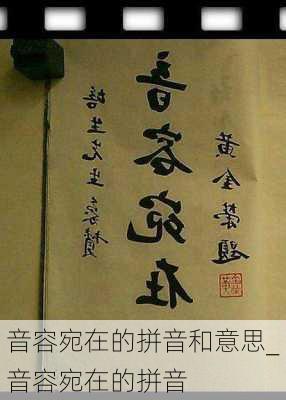 培生先生象贊
音容宛在
黃金榮題
音容宛在的拼音和意思_
音容宛在的拼音